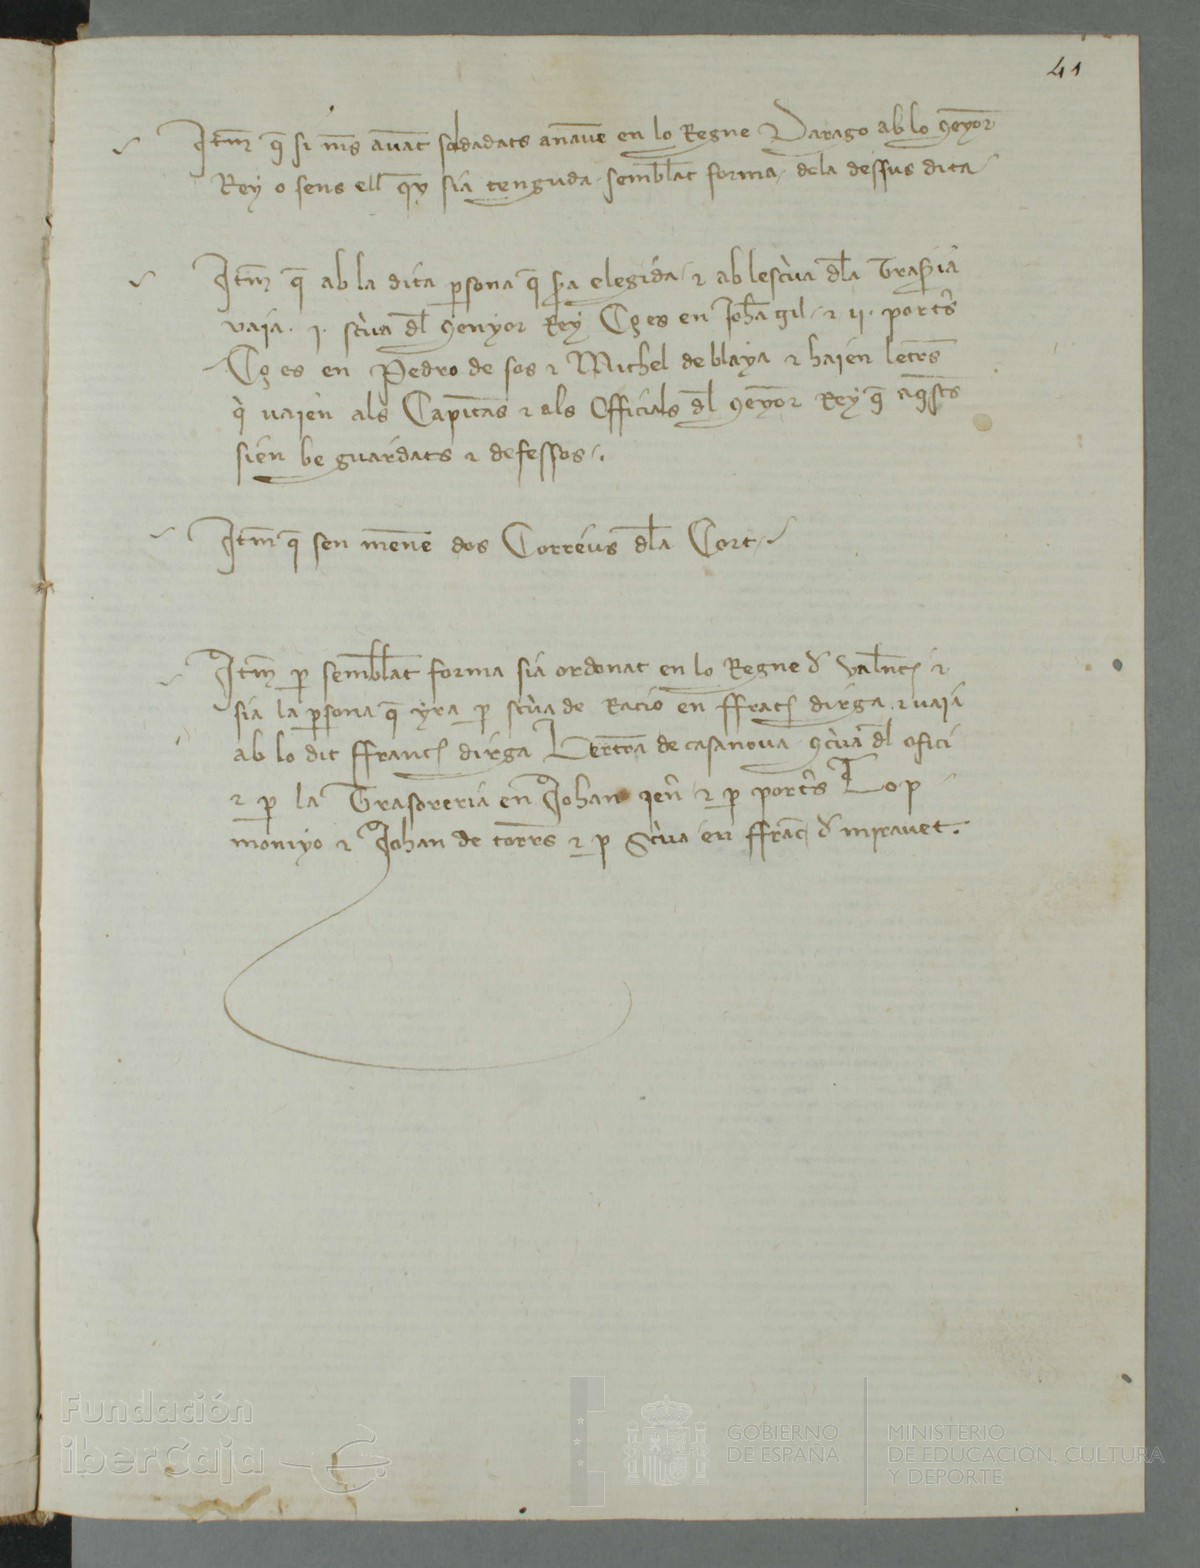 41
Itm̅ q̅ si ms̅ auāt soldadats anauē en lo Regne Darago ab lo senyor̅
Rey o sens ell q̅ y sia tenguda semblāt forma dela dessus dita
Itm̅ q̅ ab la dita psona q̅ sra elegida ⁊ ab lescⁱua dl̅a
vaja .j. scⁱua dl̅ senyor Rey Ço es en Joha̅ gil ⁊ ij. ports̅
Ço es en Pedro de sos ⁊ Michel de blaya ⁊ hajen letrs̅
q̍ vajen als Capitās ⁊ als Officials dl̅ senyor̅ Rey q̅ aqsts̅
sien be guardats ⁊ defessos.
Itm̅ q̅ sen menē dos Correus dl̅a Cort
Itm̅ p semblāt forma sia ordonat en lo Regne d̅ Valn̅c ⁊
sia la psona q̅ yra p scⁱua de Racio en ffrāc dirga ⁊ vaja
ab lo dit ffranc dirga Bertrā de casanoua scⁱua dl̅ ofici
⁊ p la Trasoreria en Johan ⁊ p ports̅ Lop
monyo ⁊ Johan de torrs̅ ⁊ p Scⁱua en ffrāc d̅ mirauet.
Fundación
iberCaja
GOBIERNO
DE ESPAÑA
MINISTERIO
DE EDUCACIÓN, CULTURA
Y DEPORTE